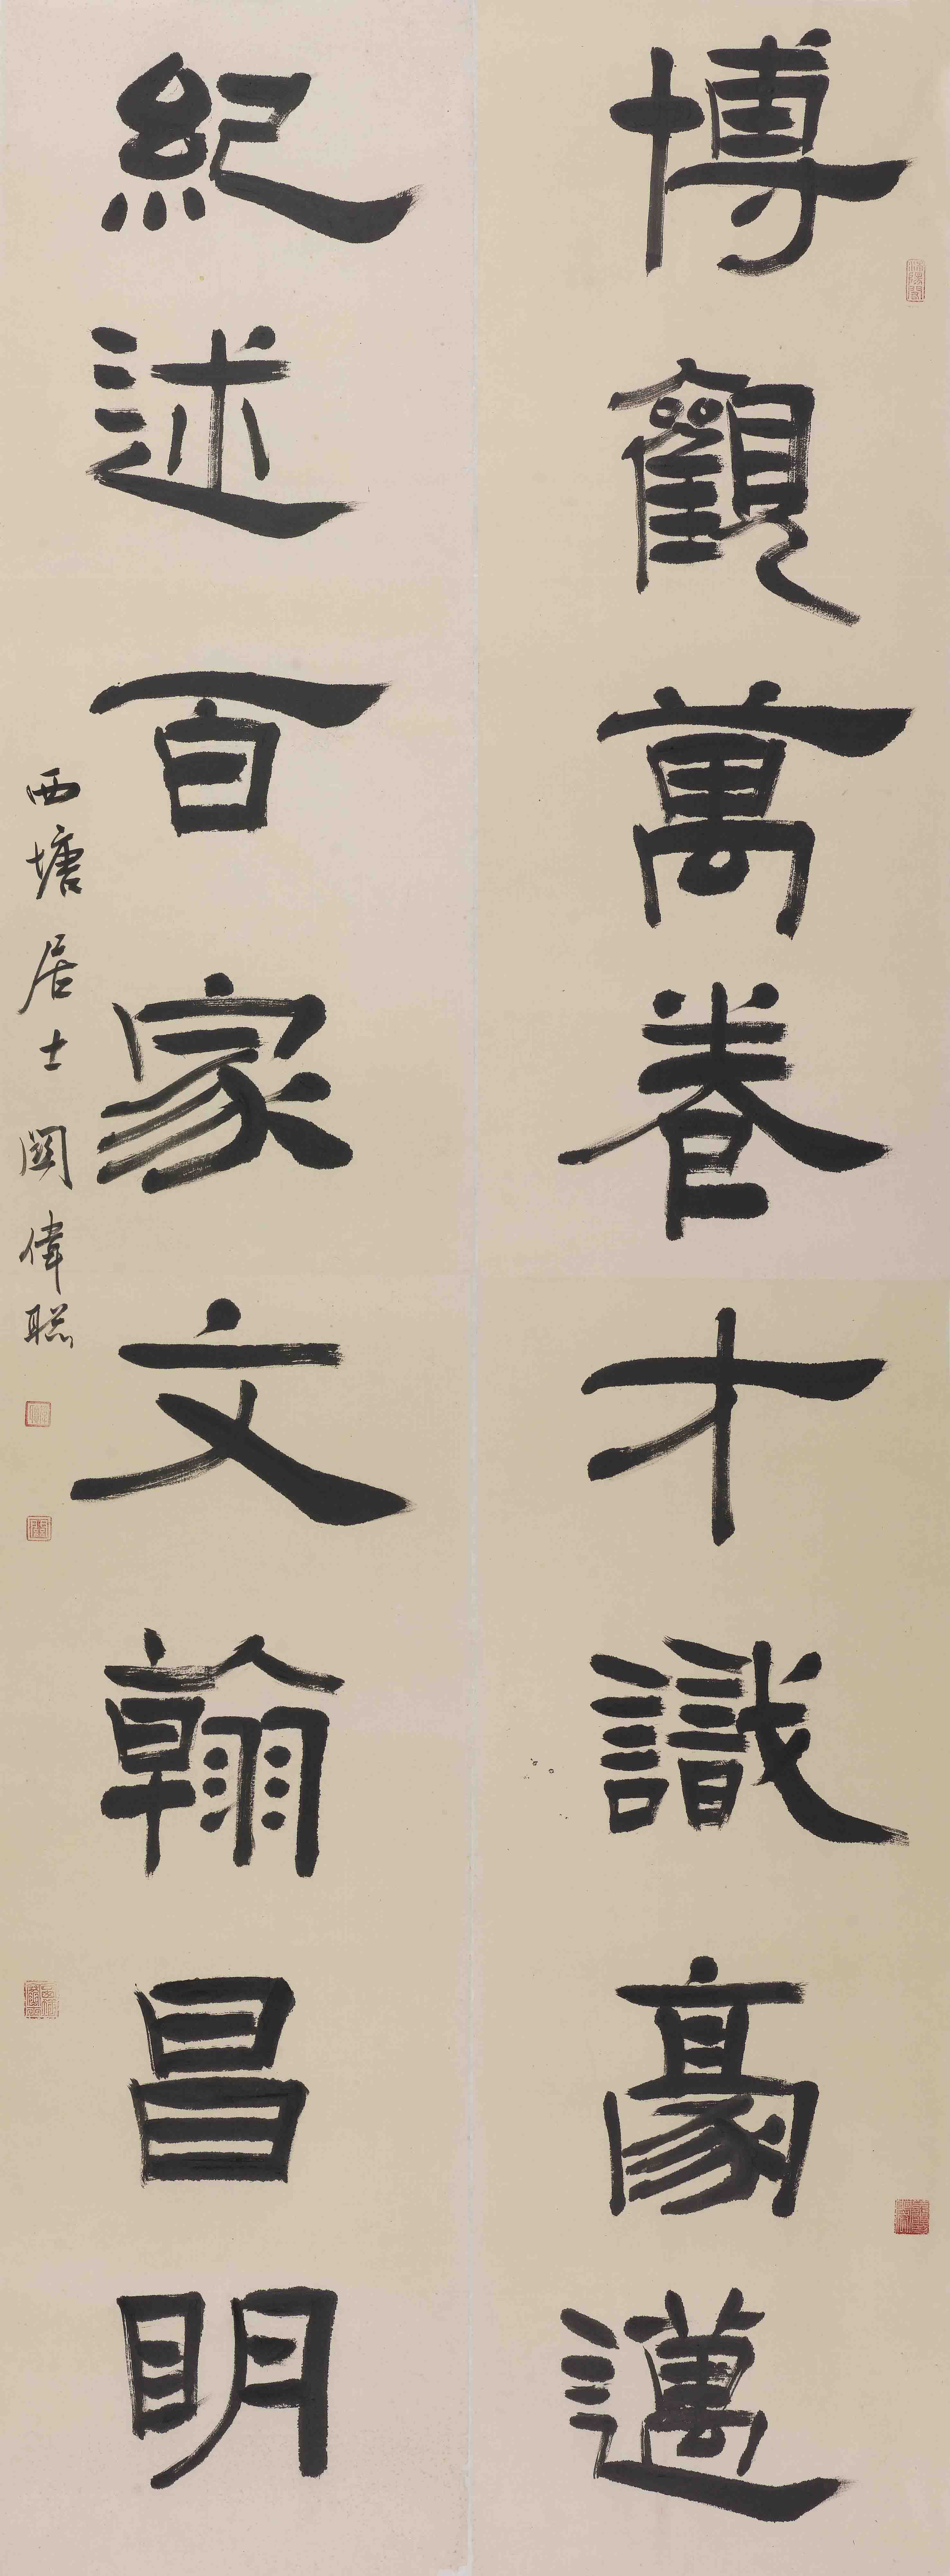 博觀萬卷才識豪邁
紀述百家文翰昌明
西塘居士闕偉聡